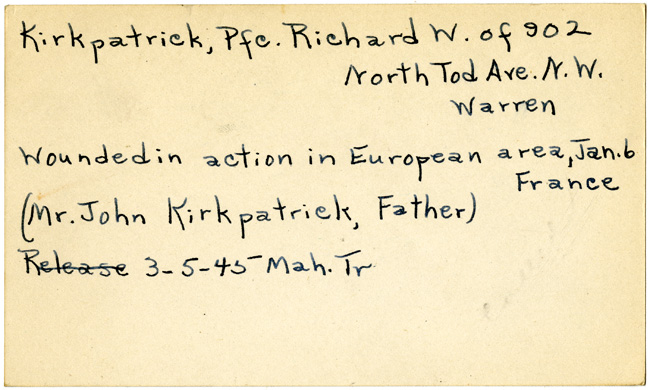 Kirkpatrick, Pfc. Richard W. of 902
North Tod Ave. N.W.
Warren
Wounded in action in European area, Jan. 6
France
(Mr. John Kirkpatrick, Father)
Release 3-5-45 Mah. Tr